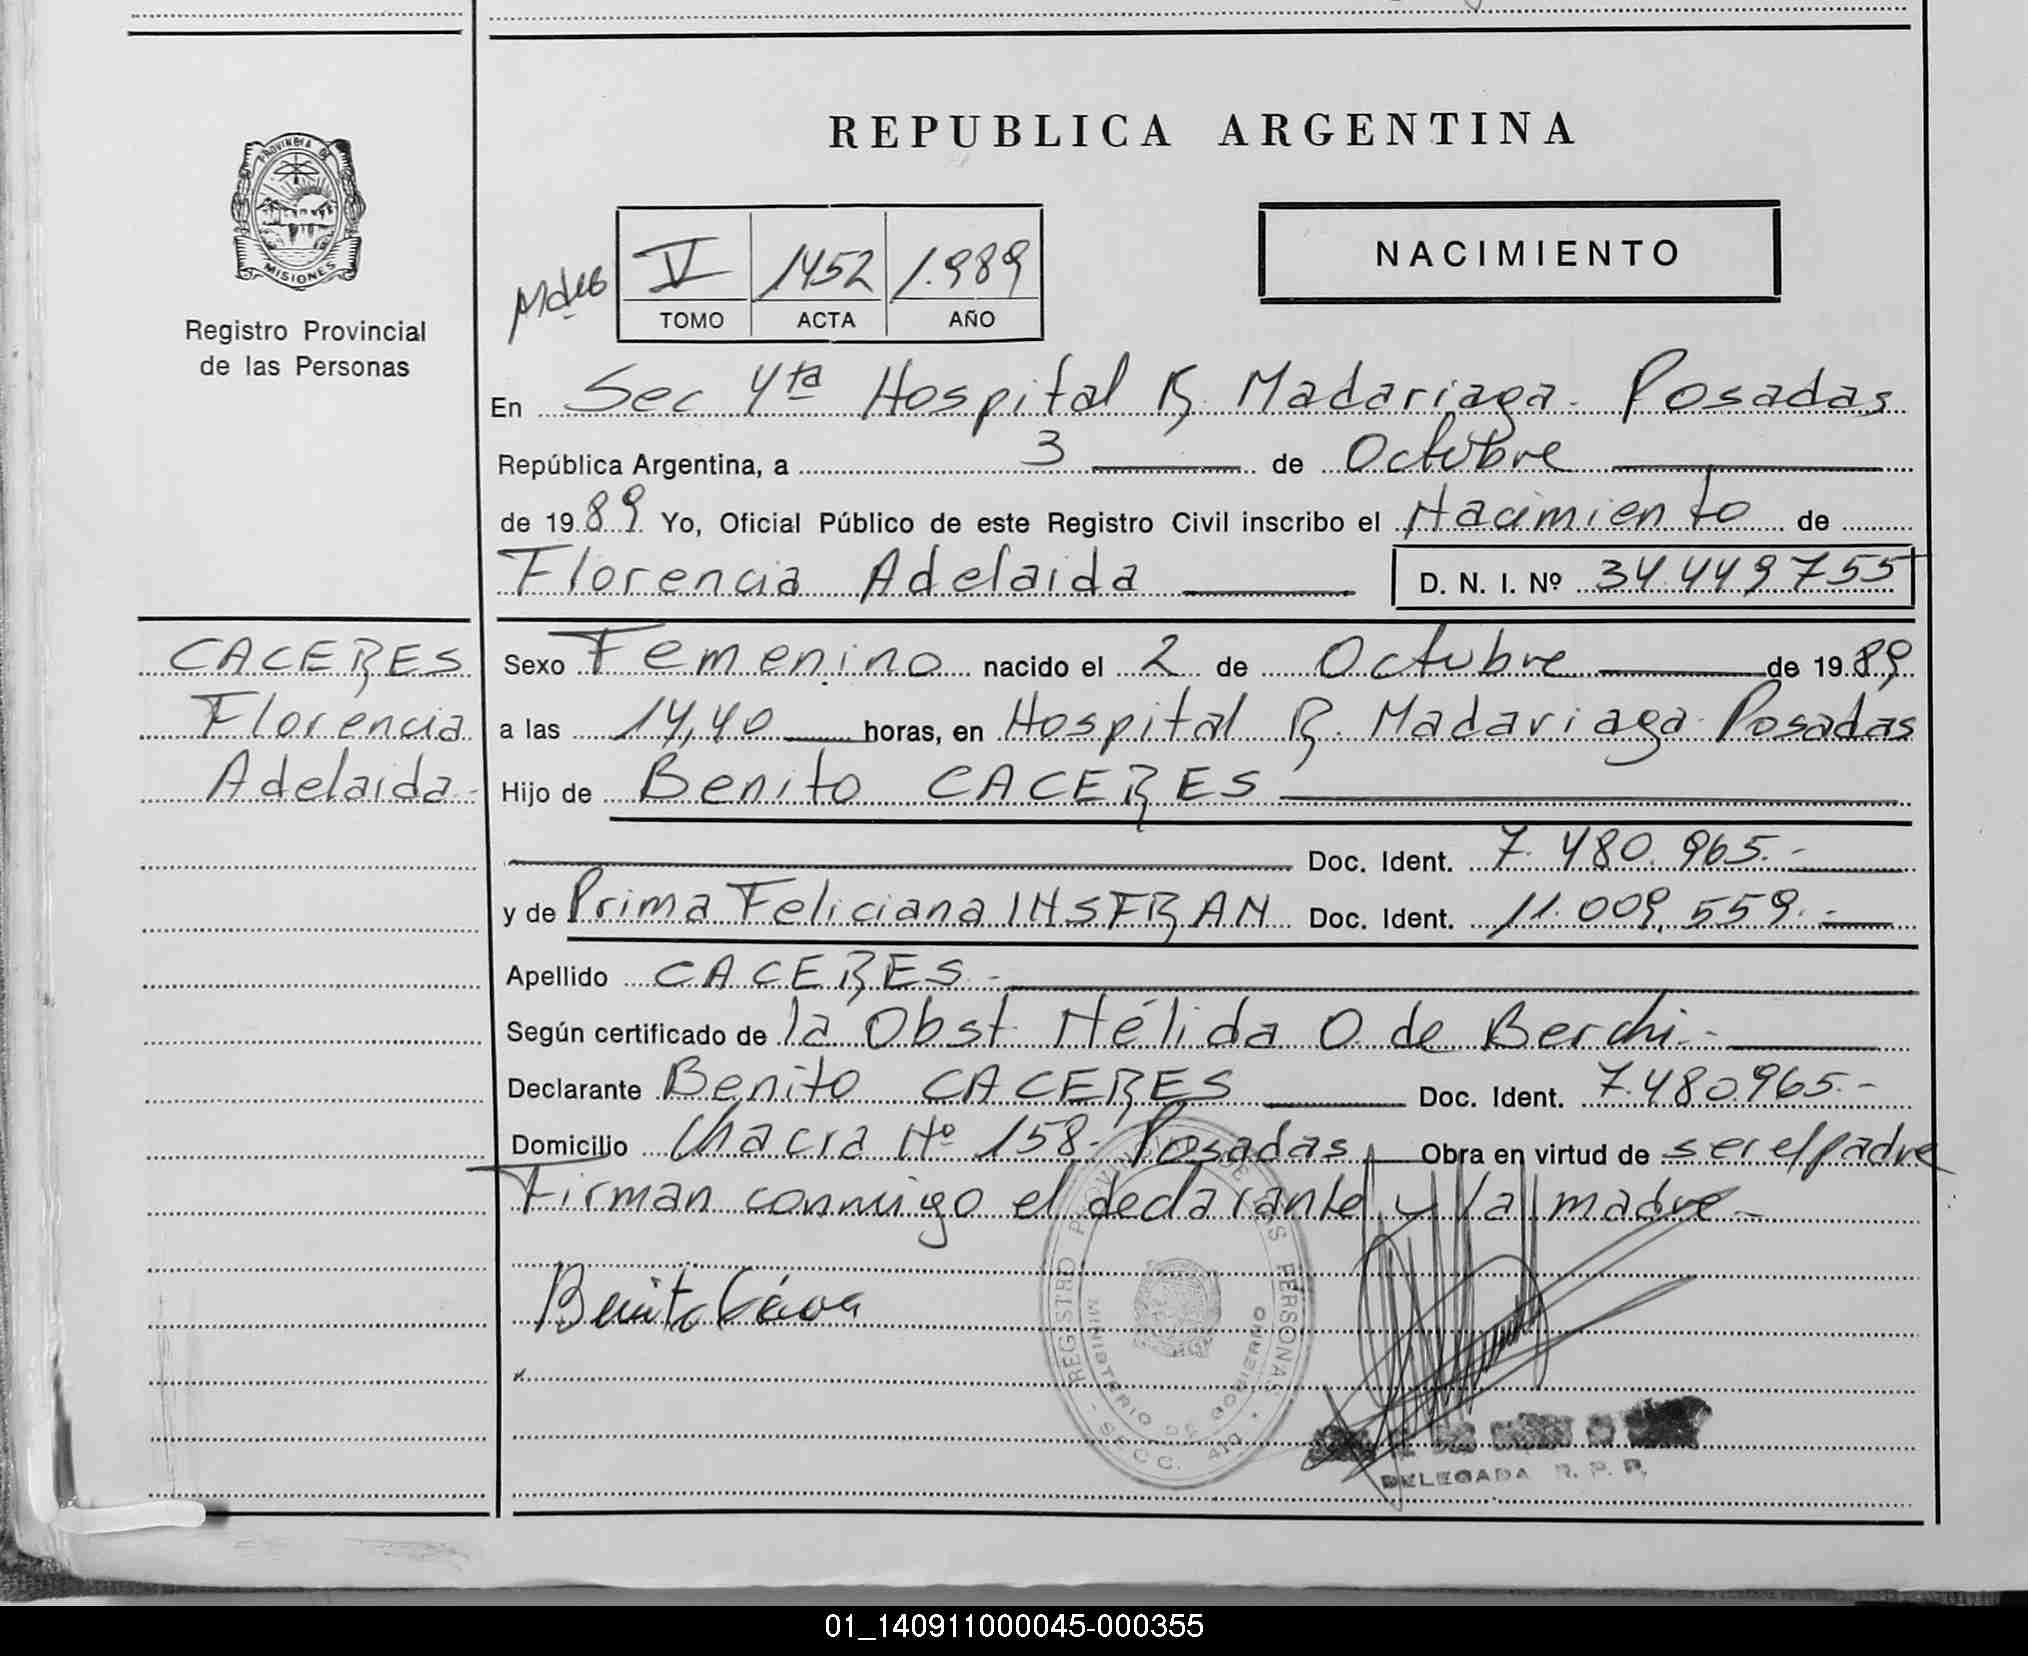 REPUBLICA ARGENTINA
PROVINCIA DE
MISIONES
Registro Provincial
de las Personas
NACIMIENTO
V 1452 1.989
TOMO ACTA AÑO
En Sec 4ta Hospital R. Madariaga. Posadas
República Argentina, a 3 de Octubre
de 1989 Yo, Oficial Público de este Registro Civil inscribo el Nacimiento de
Florencia Adelaida D. N. I. Nº 34.449755
CACERES
Florencia
Adelaida.-
Sexo Femenino nacido el 2 de Octubre de 1989
a las 14,40 horas, en Hospital R. Madariaga. Posadas
Hijo de Benito CACERES
Doc. Ident. 7.480.965.-
y de Prima Feliciana INSFRAN Doc. Ident. 11.009,559.-
Apellido CACERES.-
Según certificado de la Obst. Nélida O. de Berchi.-
Declarante Benito CACERES Doc. Ident. 7.480.965.-
Domicilio Chacra Nº 158- Posadas Obra en virtud de ser el padre
Firman conmigo el declarante y la madre.-
Benito
REGISTRO PROVINCIAL DE LAS PERSONAS
MINISTERIO DE GOBIERNO
SECC. 4ta
DELEGADA R. P. P.
01_140911000045-000355